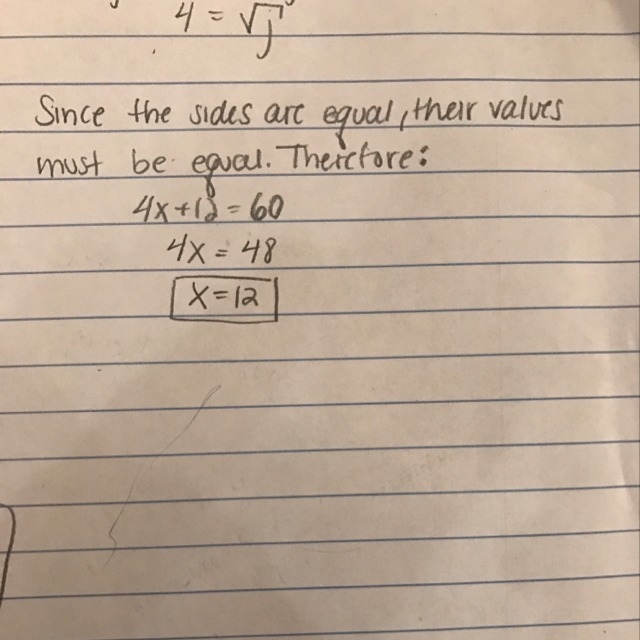 4 = √j
Since the sides are equal, their values
must be equal. Therefore:
4x+12 = 60
4x = 48
x=12